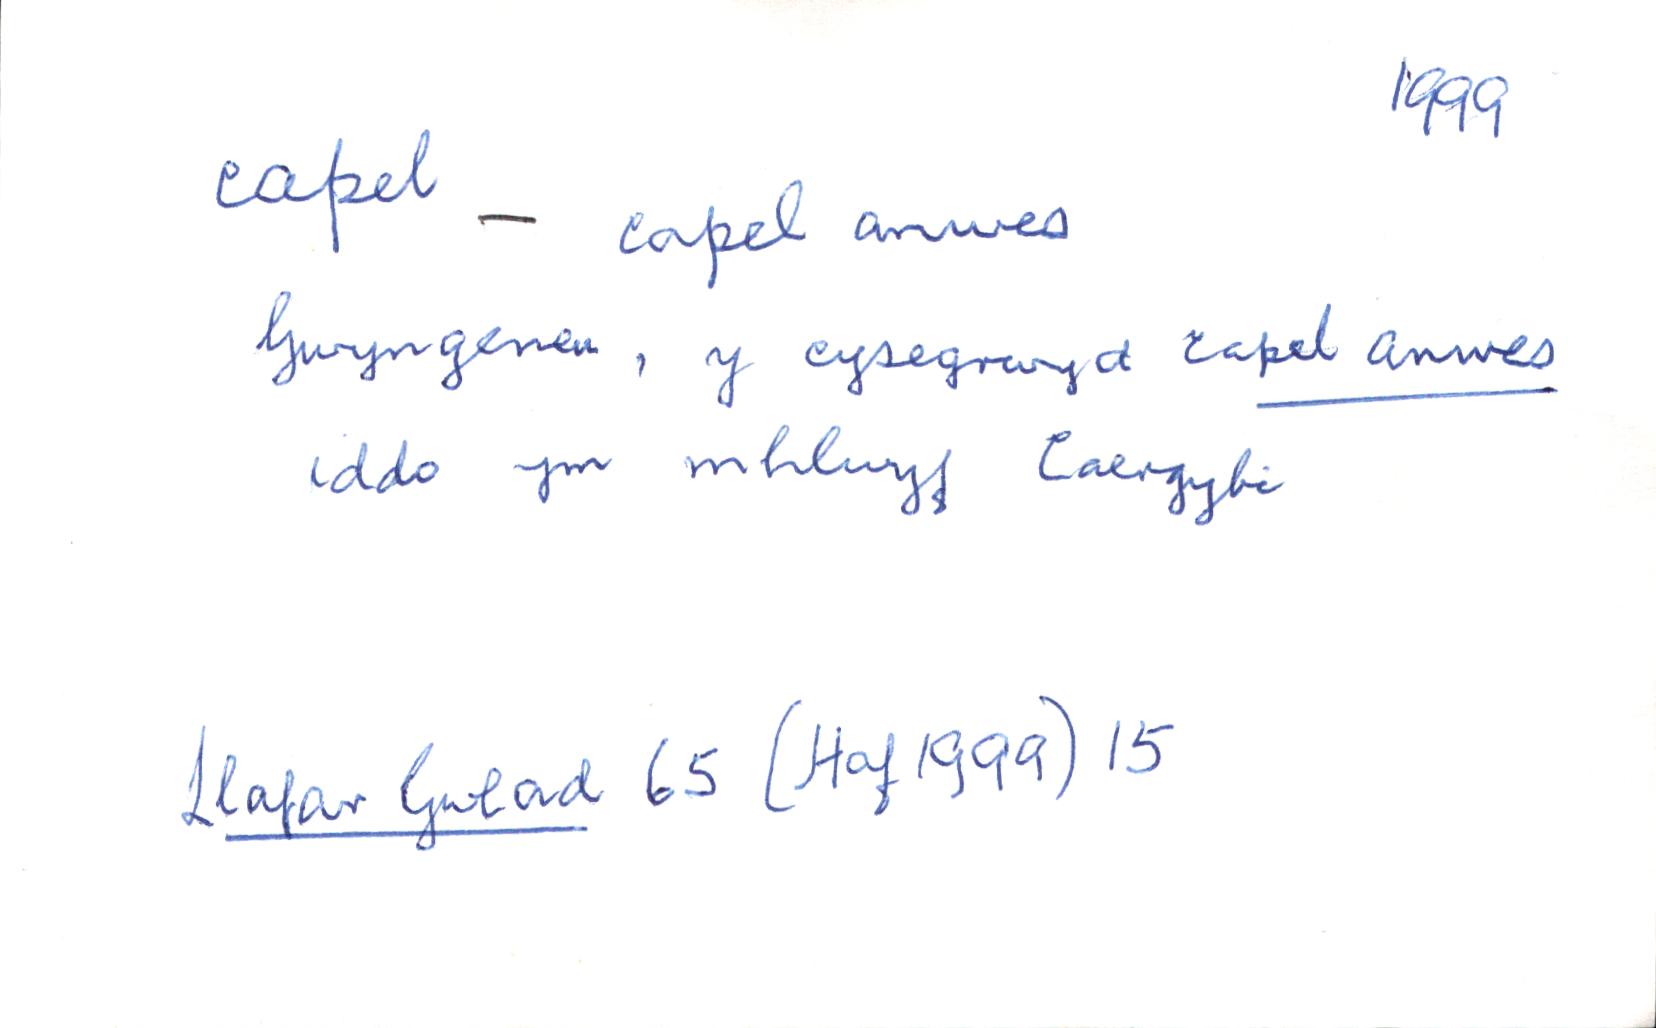 1999
capel – capel anwes
Gwyngeneu, y cysegrwyd capel anwes
iddo ym mhlwyf Caergybi
Llafar Gwlad 65 (Haf 1999) 15